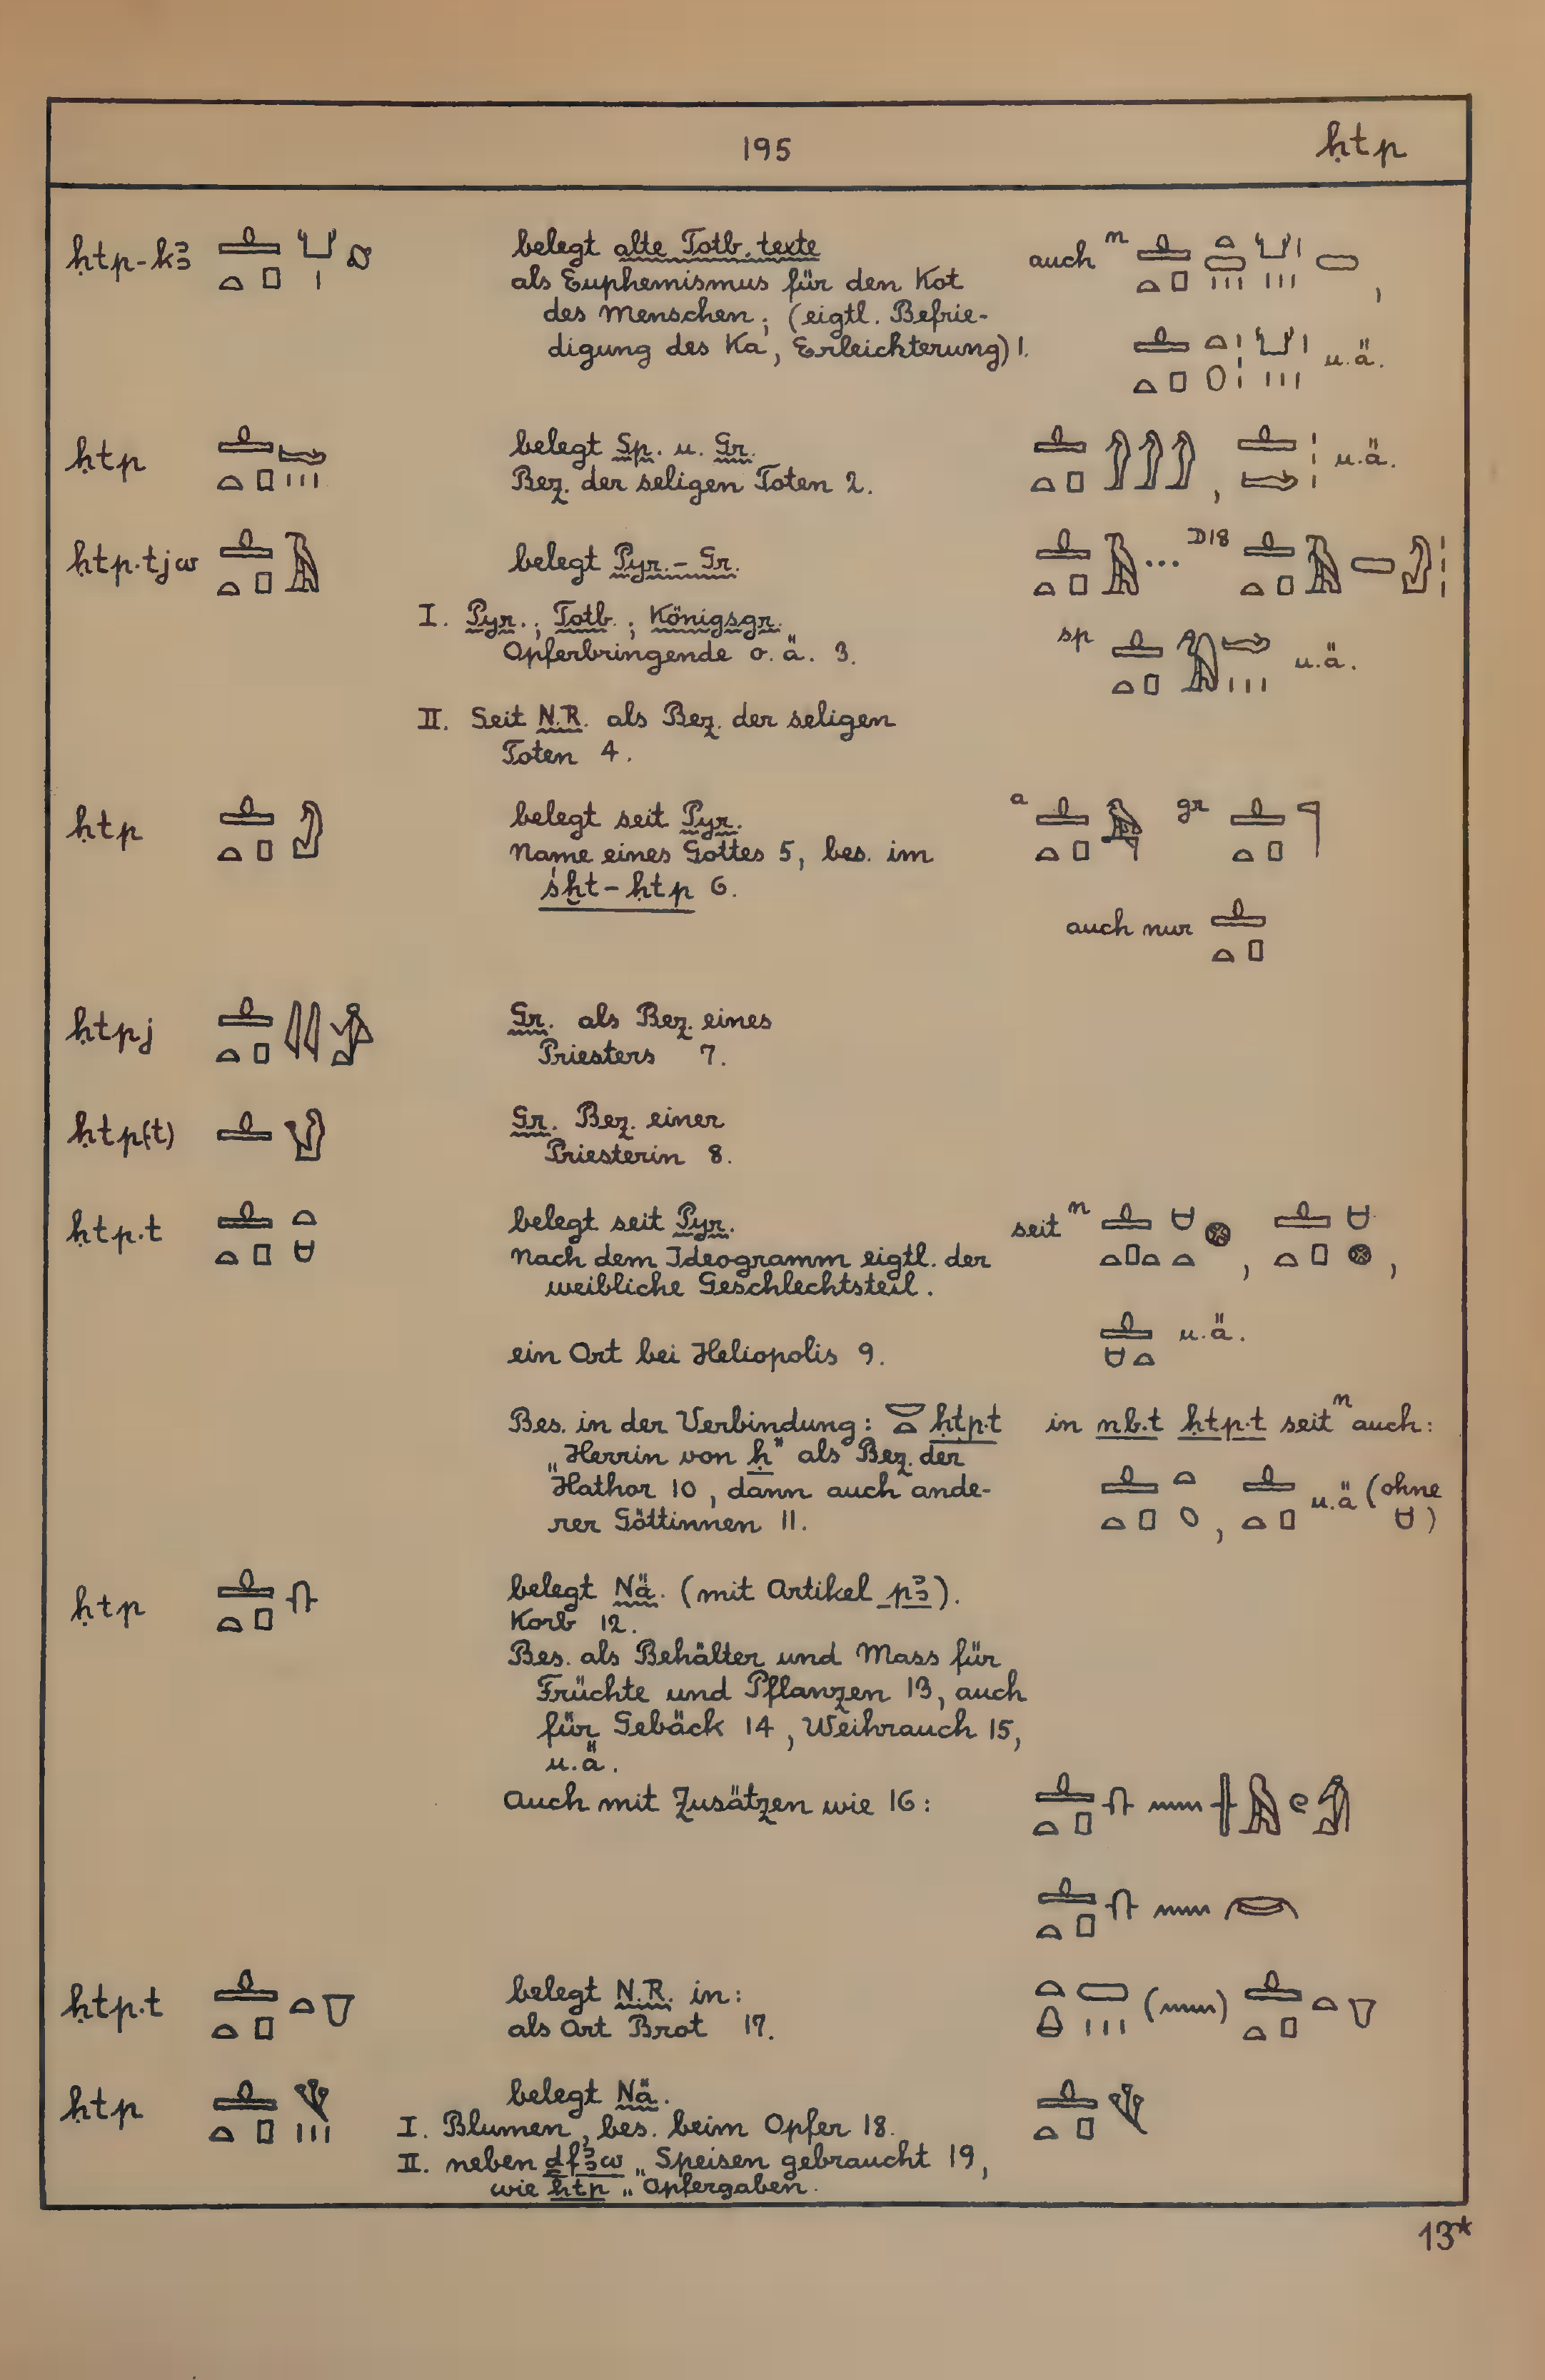 195 ḥtp
ḥtp-kꜣ belegt alte Totb. texte auch n
als Euphemismus für den Kot
des Menschen; (eigtl. Befrie-
digung des Ka, Erleichterung) 1. u.ä.
ḥtp belegt Sp. u. Gr. u.ä.
Bez. der seligen Toten 2.
ḥtp.tjw belegt Pyr.-Gr. ... D18
I. Pyr.; Totb.; Königsgr. sp u.ä.
Opferbringende o.ä. 3.
II. Seit N.R. als Bez. der seligen
Toten 4.
ḥtp belegt seit Pyr. a gr
Name eines Gottes 5, bes. im
śḫt-ḥtp 6.
auch nur
ḥtpj Gr. als Bez. eines
Priesters 7.
ḥtp(t) Gr. Bez. einer
Priesterin 8.
ḥtp.t belegt seit Pyr. seit n
Nach dem Ideogramm eigtl. der
weibliche Geschlechtsteil.
u.ä.
ein Ort bei Heliopolis 9.
Bes. in der Verbindung: ḥtp.t in nb.t ḥtp.t seit n auch:
„Herrin von ḥ" als Bez. der
Hathor 10, dann auch ande- u.ä (ohne )
rer Göttinnen 11.
ḥtp belegt Nä. (mit Artikel pꜣ).
Korb 12.
Bes. als Behälter und Mass für
Früchte und Pflanzen 13, auch
für Gebäck 14, Weihrauch 15,
u.ä.
Auch mit Zusätzen wie 16:
ḥtp.t belegt N.R. in:
als Art Brot 17.
ḥtp belegt Nä.
I. Blumen, bes. beim Opfer 18.
II. neben ḏfꜣw „Speisen gebraucht 19,
wie ḥtp „Opfergaben.
13*